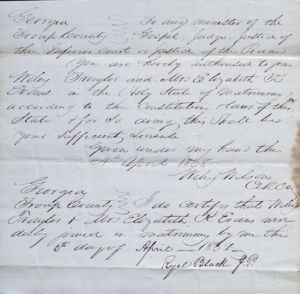 Georgia To any minister of the
Troup County Gospel, Judge, Justice of
the Superior Court or Justice of the Peace
You are hereby authorized to join
Wiley Traylor and Mrs Elizabeth
Evans in the Holy State of Matrimony
according to the Constitution & laws of this
State & for So doing this Shall be
your Sufficient License
Given under my hand this
April
Wilson
Georgia
Troup County I do certify that Wiley
Traylor & Mrs Elizabeth Evans were
duly joined in matrimony by me this
5th day of April
Black J.P.